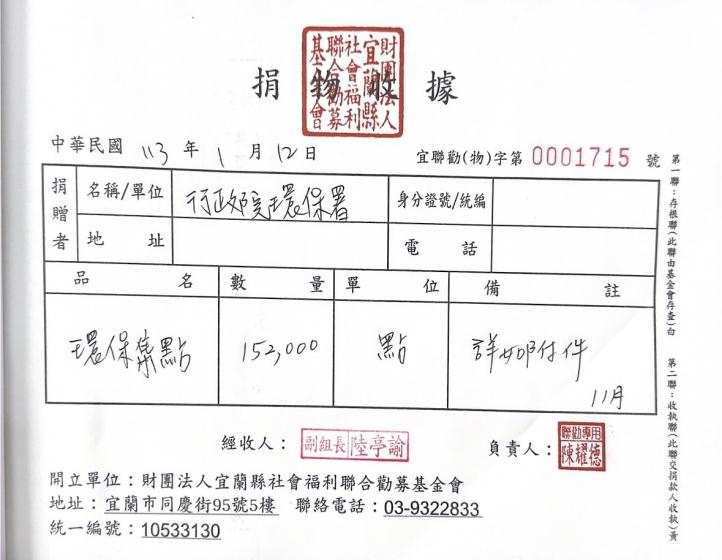 捐物收據
財團法人
宜蘭縣
社會福利
聯合勸募
基金會
中華民國 113 年 1 月 12 日
宜聯勸(物)字第 0001715 號
捐贈者 名稱/單位 行政部門環保署 身分證號/統編
地址 電話
品名 數量 單位 備註
環保集點 152,000 點 詳如附件
11月
經收人： 副組長 陸亭諭 負責人： 聯勸專用 陳耀德
開立單位：財團法人宜蘭縣社會福利聯合勸募基金會
地址：宜蘭市同慶街95號5樓 聯絡電話：03-9322833
統一編號：10533130
第一聯：存根聯(此聯由基金會存查)白 第二聯：收執聯(此聯交捐款人收執)黃